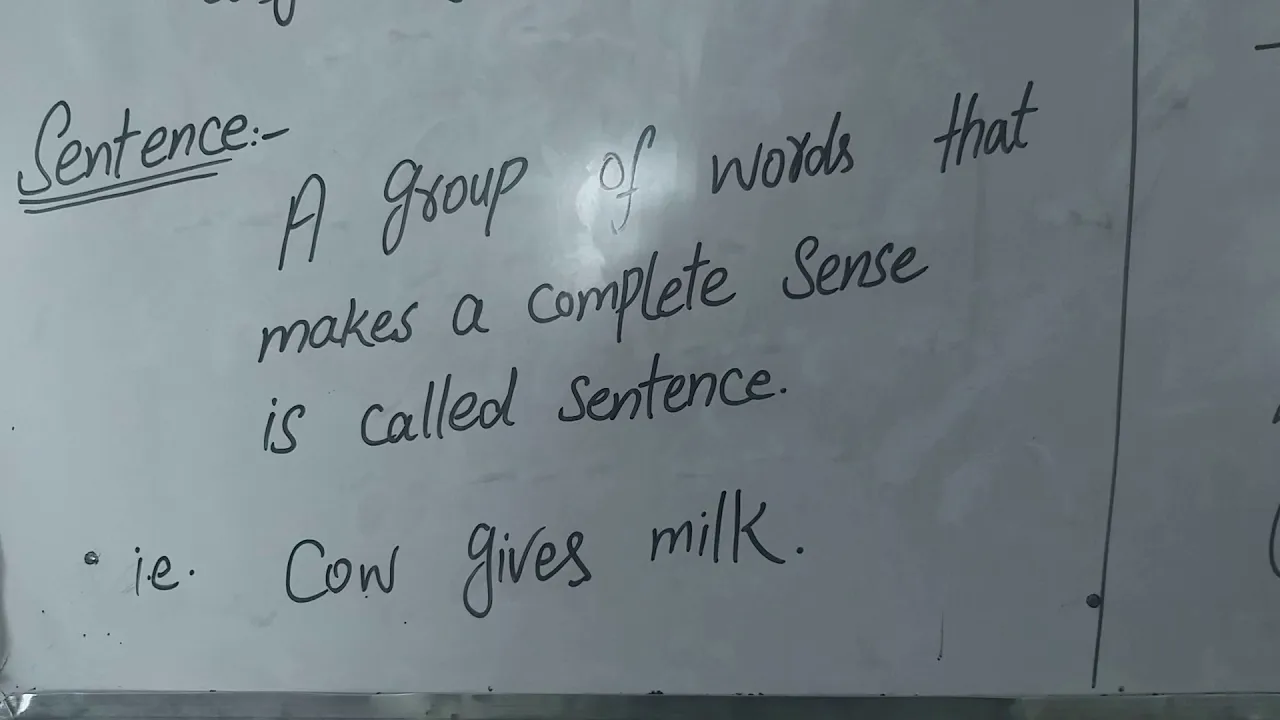 Sentence:-
A group of words that
makes a complete sense
is called sentence.
• i.e. Cow gives milk.